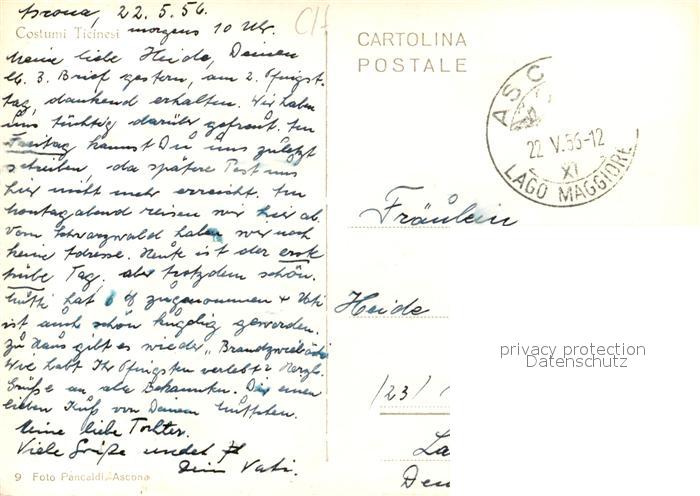 Ascona, 22.5.56.
Costumi Ticinesi morgens 10 Uhr.
Meine liebe Heide, Deinen
lb. 3. Brief gestern, am 2. Pfingst-
tag, dankend erhalten. Wir haben
uns tüchtig darüber gefreut. Am
Freitag kannst Du uns zuletzt
schreiben, da spätere Post uns
hier nicht mehr erreicht. Am
Montagabend reisen wir hier ab.
Vom Schwarzwald haben wir noch
keine Adresse. Heute ist der erste
trübe Tag, aber trotzdem schön.
Mutti hat 6 ℔ zugenommen + Vati
ist auch schön kugelig geworden.
Zu Haus gilt es wieder "Brandzwiebäcke
Wie habt Ihr Pfingsten verlebt? Herzl.
Grüße an alle Bekannten. Dir einen
lieben Kuß von Deinem Muttchen.
Meine liebe Tochter.
Viele Grüße sendet
Dein Vati.
9 Foto Pancaldi-Ascona
CARTOLINA
POSTALE
ASC
22 V.56-12
XI
LAGO MAGGIORE
Fräulein
Heide
privacy protection
Datenschutz
/23/
La
Deu